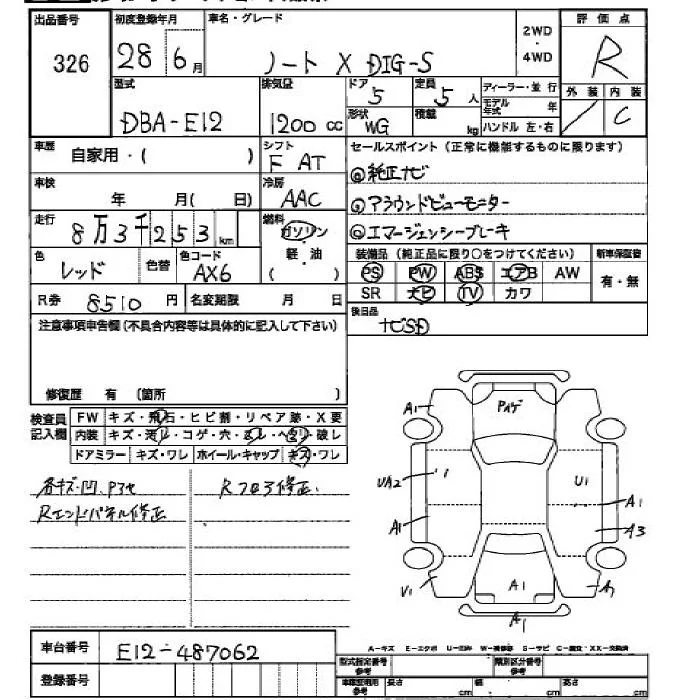 出品番号 初度登録年月 車名・グレード 2WD・4WD 評価点
326 28 6月 ノート X DIG-S R
型式 排気量 ドア 定員 ディーラー・並行 外装 内装
DBA-E12 1200 cc 5 5人 モデル年式 年 / C
形状 WG 積載 kg ハンドル 左・右
車歴 自家用・( ) シフト F AT セールスポイント(正常に機能するものに限ります)
◎純正ナビ
車検 年 月( 日) 冷房 AAC ◎アラウンドビューモニター
走行 8万3千253km 燃料 ガソリン・軽油( ) ◎エマージェンシーブレーキ
色 レッド 色替 色コード AX6 装備品(純正品に限り○をつけてください) 新車保証書
PS PW ABS エアB AW 有・無
R券 8510円 名変期限 月 日 SR ナビ TV カワ
注意事項申告欄(不具合内容等は具体的に記入して下さい) 後日品
ナビSD
修復歴 有 (箇所 )
検査員記入欄 FW キズ・飛石・ヒビ割・リペア跡・X要
内装 キズ・汚レ・コゲ・穴・スレ・ヘタリ・破レ
ドアミラー キズ・ワレ ホイール・キャップ キズ・ワレ
各キズ・凹、P3セ Rフロア修正、
Rエンドパネル修正
A1 P入ゲ
UA2 U1
A1 A1
A3
V1 A1 A1
A1
車台番号 E12-487062
A-キズ E-エクボ U-凹み W-補修跡 S-サビ C-腐食・XX-交換済
登録番号 型式指定番号 参考 類別区分番号 参考
長さ cm 幅 cm 高さ cm